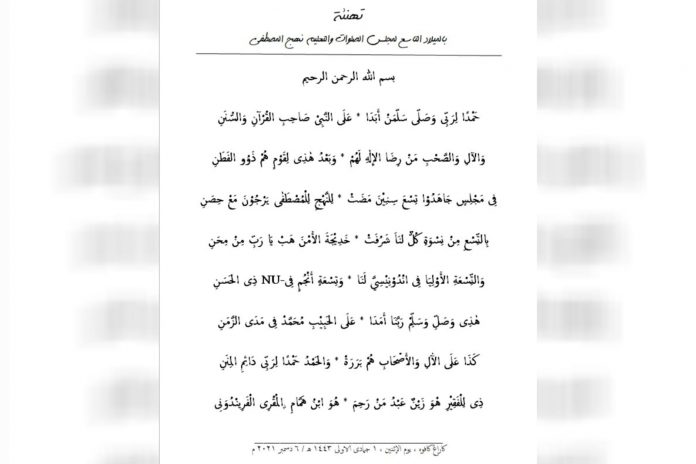 تهنئة
بالميلاد التاسع لمجلس الصلوات والتعليم نهج المصطفى
بسم الله الرحمن الرحيم
حَمْدًا لِرَبِّى وَصَلَّى سَلِّمَنْ أَبَدَا * عَلَى النَّبِىْ صَاحِبِ الْقُرْآنِ وَالسُّنَنِ
وَالآلِ وَالصَّحْبِ مَنْ رِضَا الإِلٰهِ لَهُمْ * وَبَعْدُ هٰذِى لِقَوْمٍ هُمْ ذَوُو الفَطَنِ
فِى مَجْلِسٍ جَاهَدُوْا تِسْعَ سِنِيْنَ مَضَتْ * لِلنَّهْجِ لِلْمُصْطَفٰى يَرْجُوْنَ مَعْ حِصَنِ
بِالتِّسْعِ مِنْ نِسْوَةٍ كُلٌّ لَنَا شَرُفَتْ * خَدِيْجَةَ الْأَمْنَ هَبْ يَا رَبِّ مِنْ مِحَنِ
وَالتِّسْعَةِ الْأَوْلِيَا فِى اندُوْنِيْسِيٍّ لَنَا * وَتِسْعَةِ أَنْجُمٍ فِى-NU ذِى الْحَسَنِ
هٰذِى وَصَلِّ وَسَلِّمْ رَبَّنَا أَمَدَا * عَلَى الْحَبِيْبِ مُحَمَّدْ فِى مَدَى الزَّمَنِ
كَذَا عَلَى الْآلِ وَالْأَصْحَابِ هُمْ بَرَرَةْ * وَالْحَمْدُ حَمْدًا لِرَبِّى دَائِمِ الْمِنَنِ
ذِى لِلْفَقِيْرِ هُوَ زَيْنٌ عَبْدُ مَنْ رَحِمَ * هُوَ ابْنُ هَمَّامِ ‌الْمُقْرِى الْفَرِينْدُوَنِى
كاراغ كافوه ، يوم الإثنين ، ١ جمادى الاولى ١٤٤٣ هـ / ٦ دسمبر ٢٠٢١ م